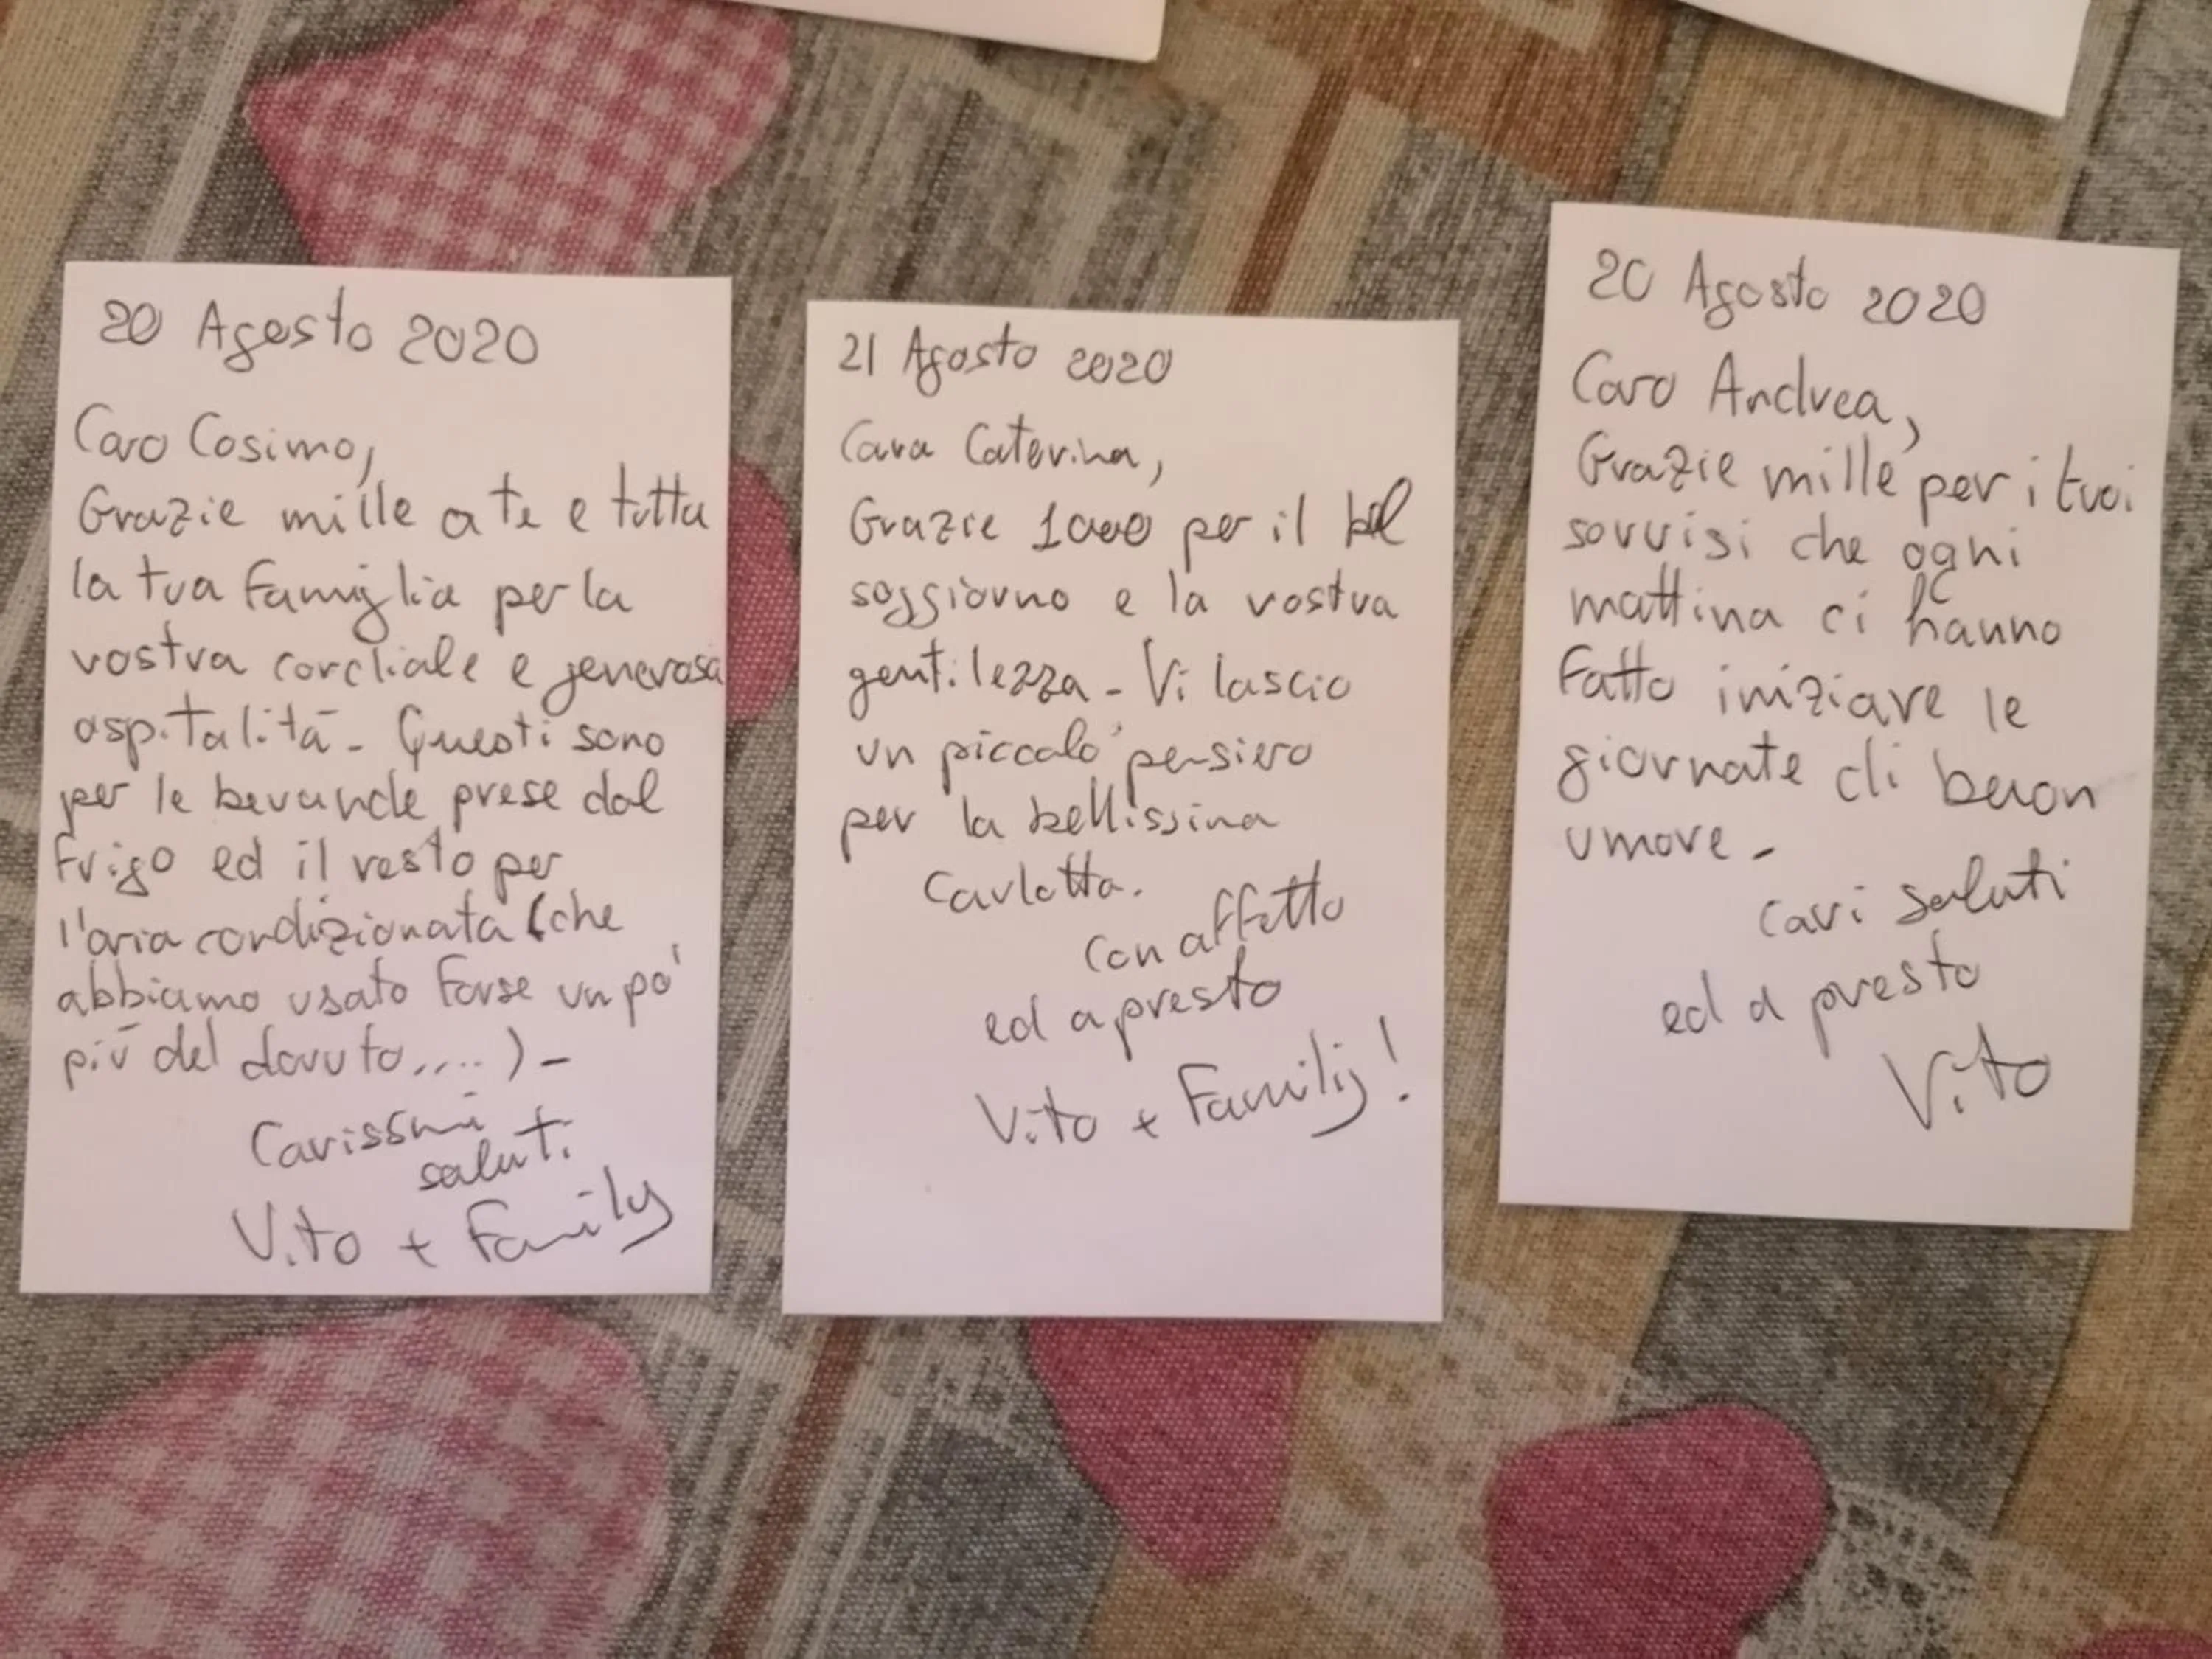 20 Agosto 2020
Caro Cosimo,
Grazie mille a te e tutta
la tua famiglia per la
vostra cordiale e generosa
ospitalità - Questi sono
per le bevande prese dal
frigo ed il resto per
l'aria condizionata (che
abbiamo usato forse un po'
più del dovuto.....) -
Carissimi
saluti
Vito + Family
21 Agosto 2020
Cara Caterina,
Grazie 1000 per il bel
soggiorno e la vostra
gentilezza - Vi lascio
un piccolo pensiero
per la bellissima
Carlotta.
Con affetto
ed a presto
Vito + Family!
20 Agosto 2020
Caro Andrea,
Grazie mille per i tuoi
sorrisi che ogni
mattina ci hanno
fatto iniziare le
giornate di buon
umore -
Cari saluti
ed a presto
Vito